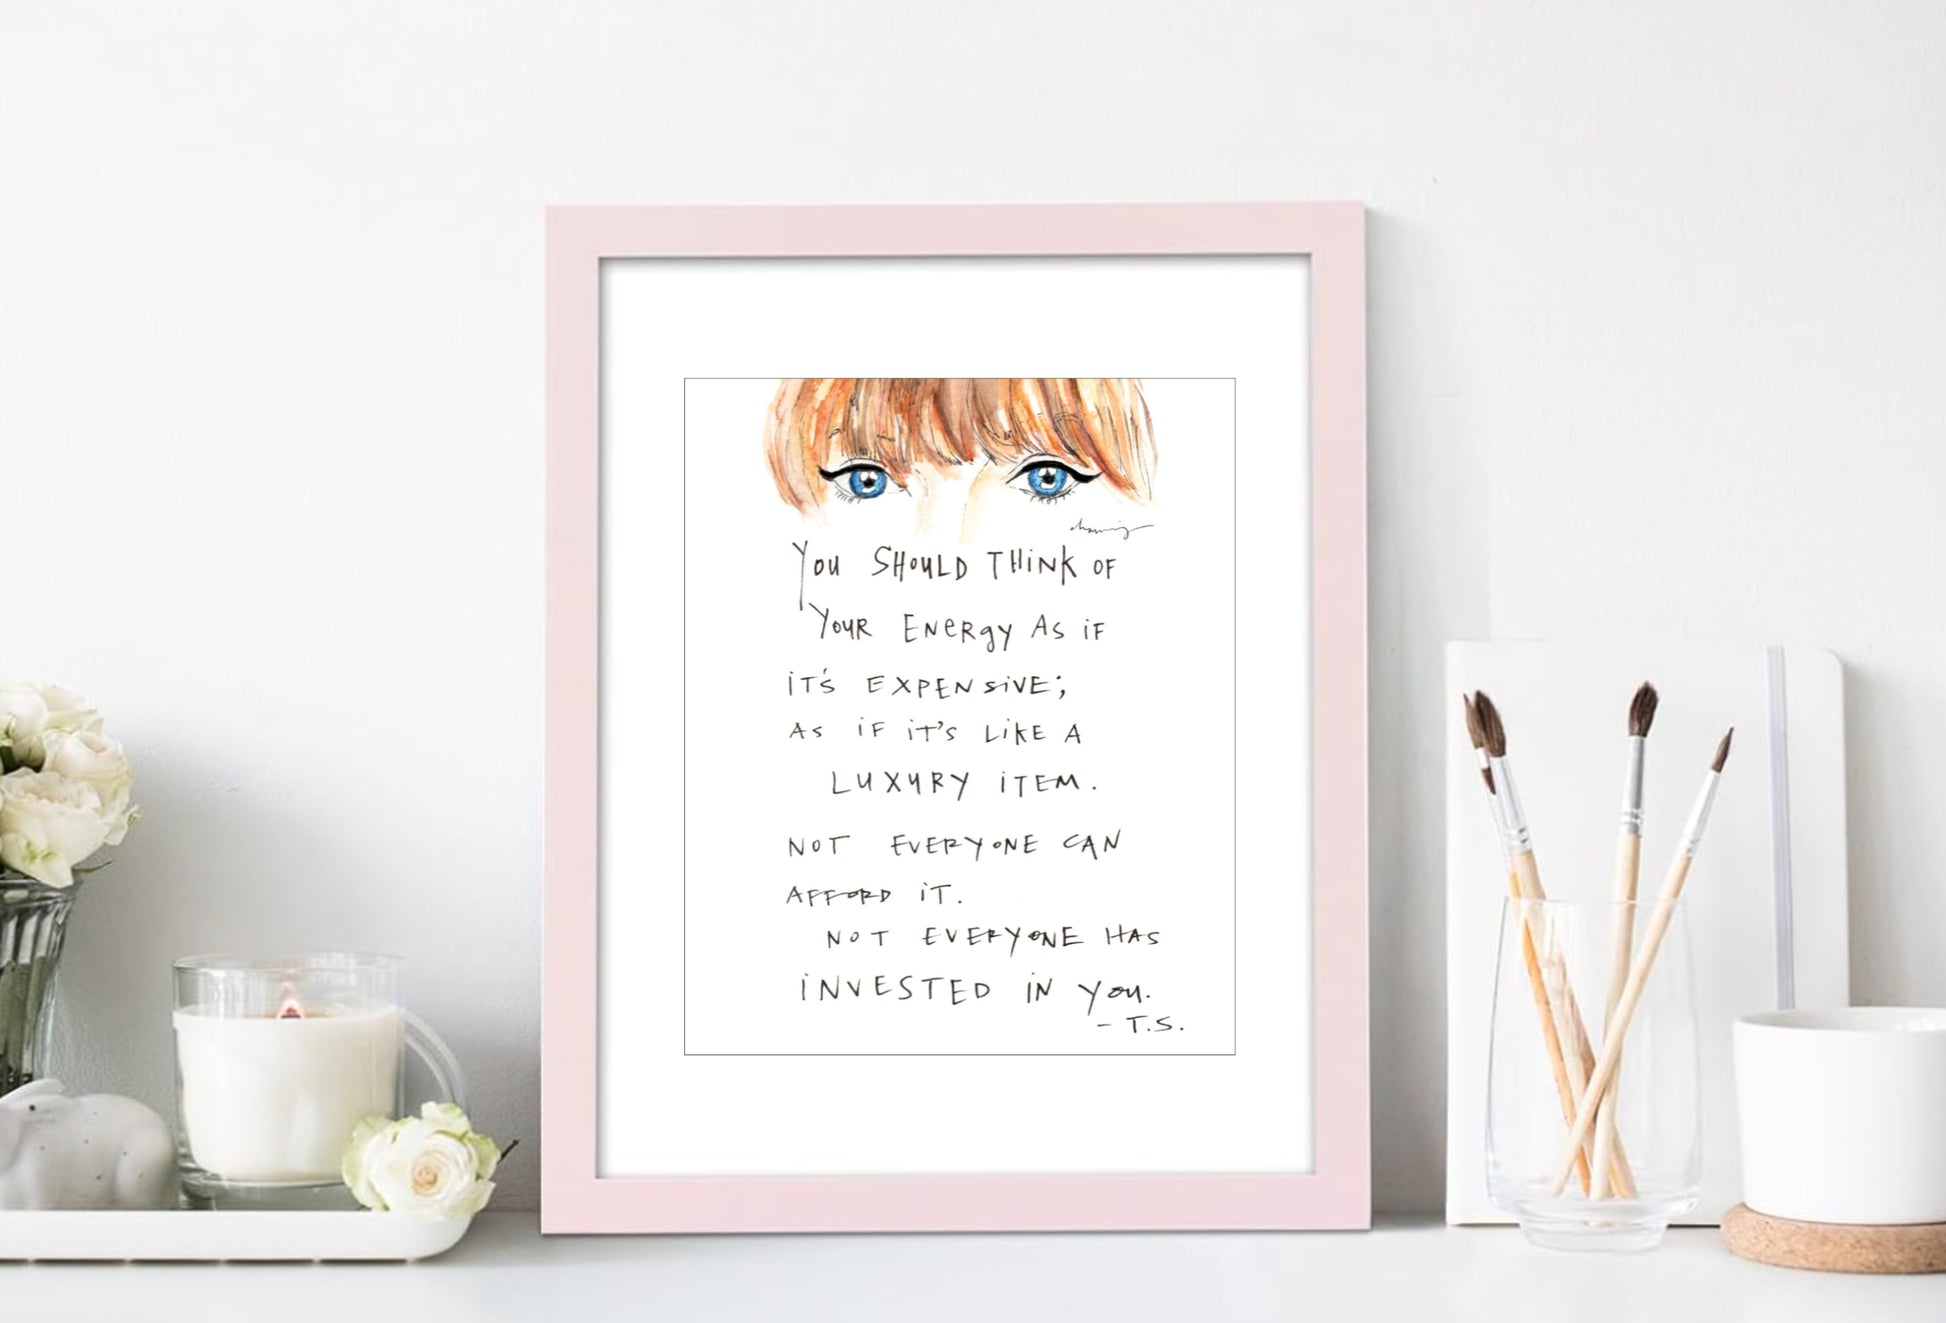 YOU SHOULD THINK OF
YOUR ENERGY AS IF
IT'S EXPENSIVE;
AS IF IT'S LIKE A
LUXURY ITEM.
NOT EVERYONE CAN
AFFORD IT.
NOT EVERYONE HAS
INVESTED IN YOU.
- T.S.